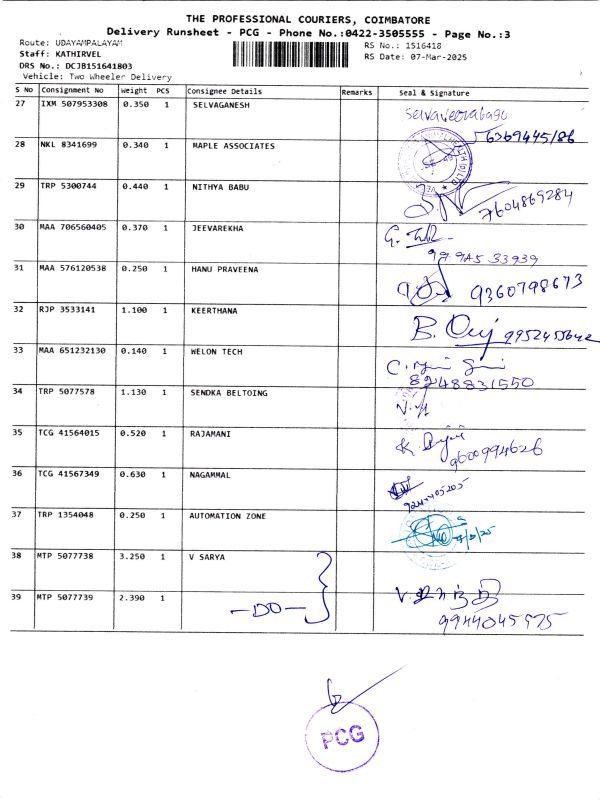 THE PROFESSIONAL COURIERS, COIMBATORE
Delivery Runsheet - PCG - Phone No.:0422-3505555 - Page No.:3
Route: UDAYAMPALAYAM
Staff: KATHIRVEL
DRS No.: DCJB151641803
Vehicle: Two Wheeler Delivery
RS No.: 1516418
RS Date: 07-Mar-2025
S No Consignment No Weight PCS Consignee Details Remarks Seal & Signature
27 IXM 507953308 0.350 1 SELVAGANESH
28 NKL 8341699 0.340 1 MAPLE ASSOCIATES
29 TRP 5300744 0.440 1 NITHYA BABU 7604869284
30 MAA 706560405 0.370 1 JEEVAREKHA
31 MAA 576120538 0.250 1 HANU PRAVEENA 9360798673
32 RJP 3533141 1.100 1 KEERTHANA B.
33 MAA 651232130 0.140 1 WELON TECH 8248831550
34 TRP 5077578 1.130 1 SENDKA BELTOING
35 TCG 41564015 0.520 1 RAJAMANI 9600994626
36 TCG 41567349 0.630 1 NAGAMMAL
37 TRP 1354048 0.250 1 AUTOMATION ZONE
38 MTP 5077738 3.250 1 V SARYA
39 MTP 5077739 2.390 1 —DO—
9944045575
PCG